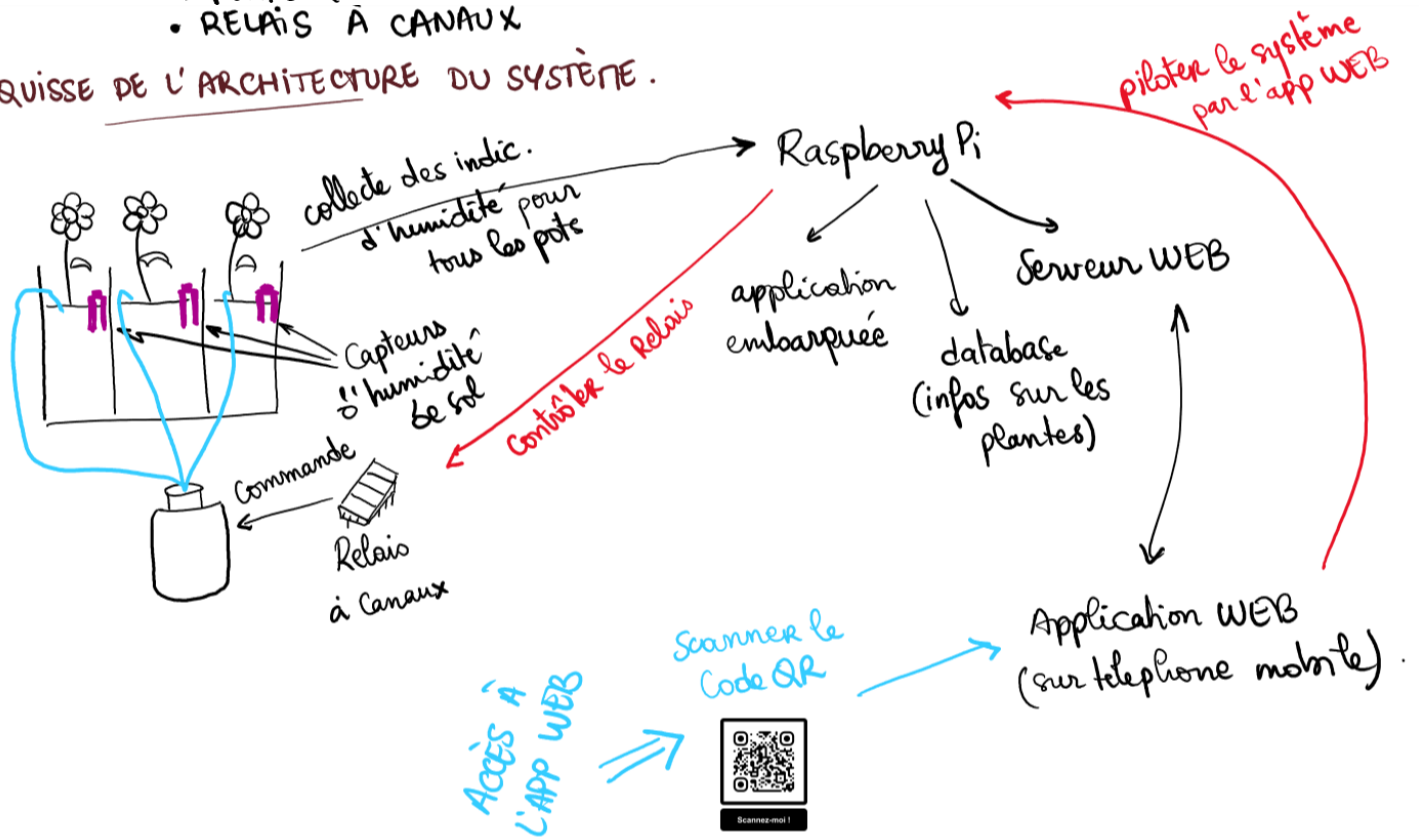 • RELAIS À CANAUX
QUISSE DE L'ARCHITECTURE DU SYSTÈME.
piloter le système
par l'app WEB
collecte des indic.
d'humidité pour
tous les pots
Raspberry Pi
application
embarquée
database
(infos sur les
plantes)
Serveur WEB
Capteurs
d'humidité
de sol
Contrôler le Relais
Commande
Relais
à Canaux
Application WEB
(sur telephone mobile).
Scanner le
Code QR
ACCÈS À
L'APP WEB
Scannez-moi !